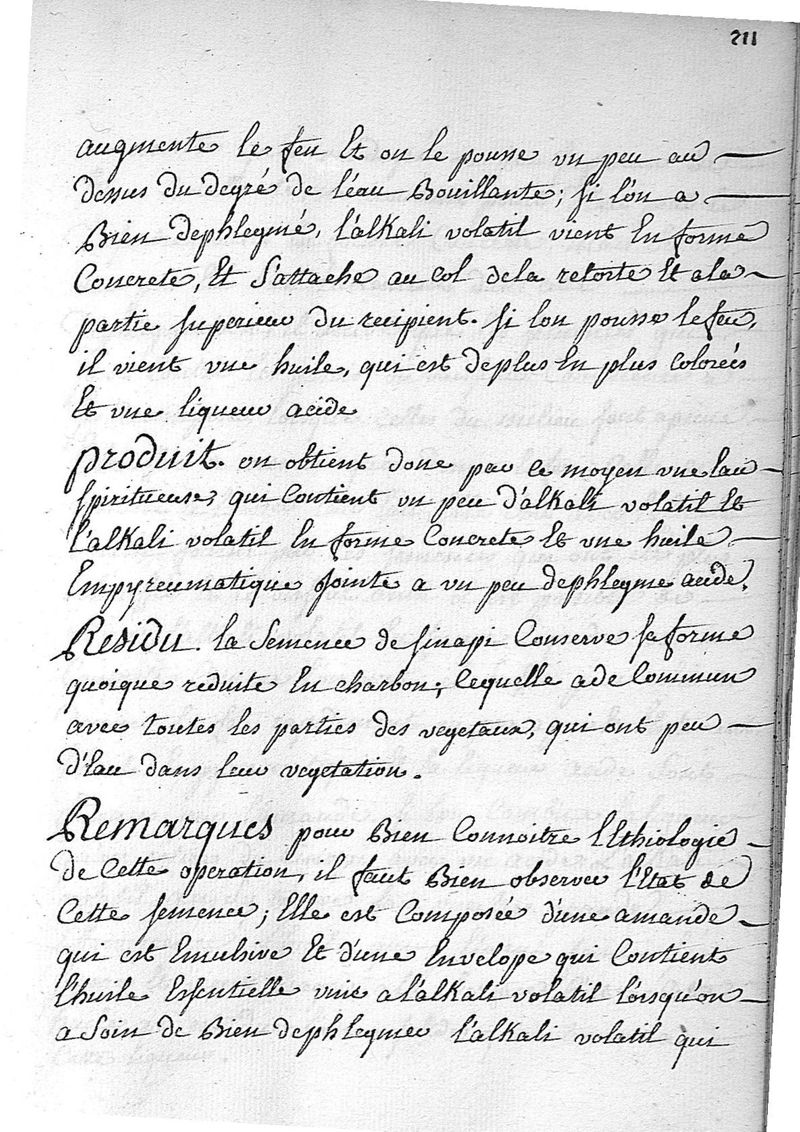 211
augmente le feu Et on le pousse un peu au
dessus du degré de l'éau Bouillante; si l'on a
Bien dephlegmé, l'alKali volatil vient En forme
Concrete, Et s'attache au col dela retorte Et ala
partie superieur du recipient. si l'on pousse lefeu,
il vient une huile, qui est deplus En plus Colorées
Et une liqueur acide
produit. on obtient donc par ce moyen une Eau
spiritueuse, qui Contient un peu d'alKali volatil Et
l'alKali volatil En forme Concrete Et une huile
Empyreumatique Jointe a un peu dephlegme acide.
Residu. la Semence de sinapi Conserve sa forme
quoique reduite En charbon; Cequelle a de Commun
avec toutes les parties des vegetaux, qui ont peu
d'Eau dans leur vegetation.
Remarques pour Bien Connoitre l'Ethiologie
de Cette operation, il faut Bien observer l'Etat de
Cette semence; Elle est Composée d'une amande
qui est Emulsive Et d'une Envelope qui Contient
l'huile Essentielle unie a l'alkali volatil lorsqu'on
a Soin de Bien dephlegmer l'alkali volatil qui